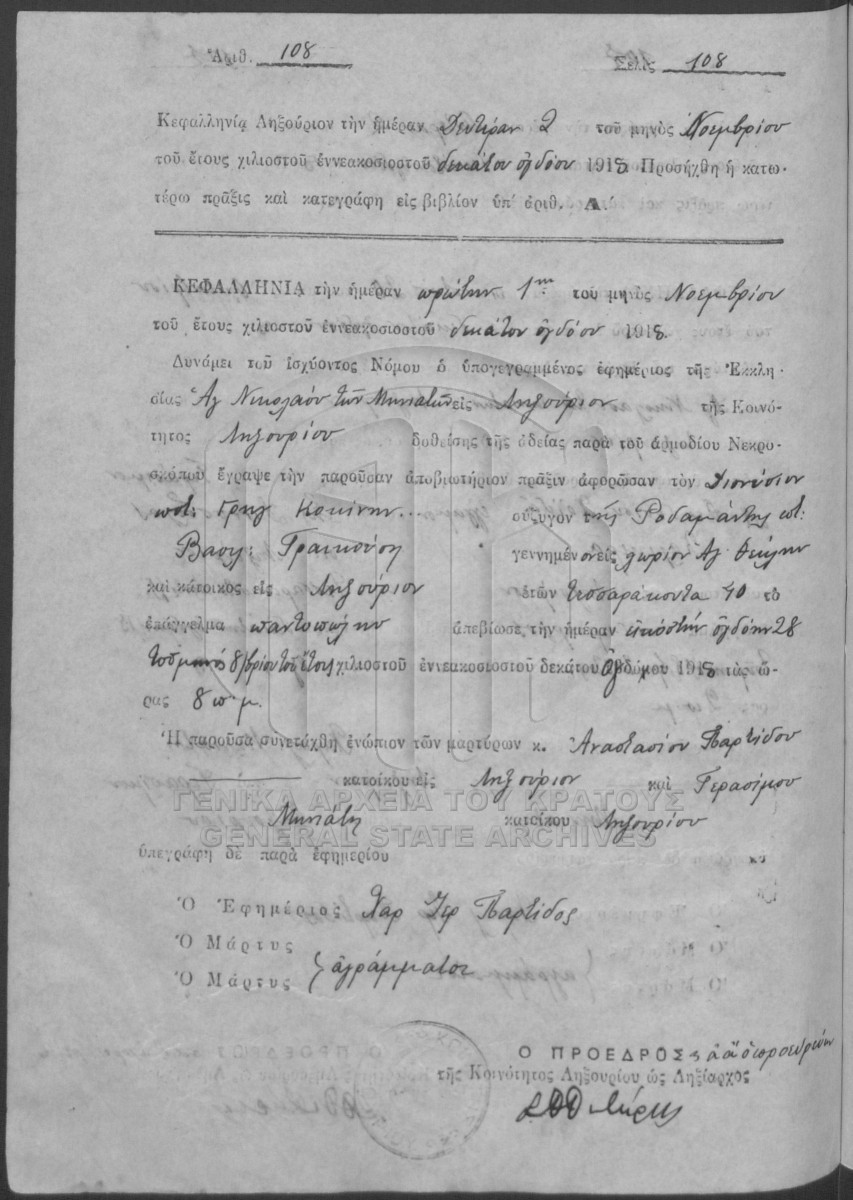 Ἀριθ. 108 Σελὶς 108
Κεφαλληνία Ληξούριον τὴν ἡμέραν Δευτέραν 2 τοῦ μηνὸς Νοεμβρίου
τοῦ ἔτους χιλιοστοῦ ἐννεακοσιοστοῦ δεκάτου ὀγδόου 1918 Προσήχθη ἡ κατω-
τέρω πρᾶξις καὶ κατεγράφη εἰς βιβλίον ὑπ' ἀριθ. Α.
ΚΕΦΑΛΛΗΝΙΑ τὴν ἡμέραν πρώτην 1ην τοῦ μηνὸς Νοεμβρίου
τοῦ ἔτους χιλιοστοῦ ἐννεακοσιοστοῦ δεκάτου ὀγδόου 1918.
Δυνάμει τοῦ ἰσχύοντος Νόμου ὁ ὑπογεγραμμένος ἐφημέριος τῆς Ἐκκλη-
σίας Ἁγ Νικολάου τῶν Μηνιατῶν εἰς Ληξούριον τῆς Κοινό-
τητος Ληξουρίου δοθείσης τῆς ἀδείας παρὰ τοῦ ἁρμοδίου Νεκρο-
σκόπου ἔγραψε τὴν παροῦσαν ἀποβιωτήριον πρᾶξιν ἀφορῶσαν τὸν Διονύσιον
ποτ: Γρηγ σύζυγον τῆς Ροδαμάνθης ποτ:
Βασιλ: γεννημένον εἰς χωρίον Ἁγ Θέκλην
καὶ κάτοικος εἰς Ληξούριον ἐτῶν τεσσαράκοντα 40 τὸ
ἐπάγγελμα παντοπώλην ἀπεβίωσε τὴν ἡμέραν εἰκοστήν ὀγδόην 28
τοῦ μηνὸς 8/βρίου τοῦ ἔτους χιλιοστοῦ ἐννεακοσιοστοῦ δεκάτου 1918 τὰς ὥ-
ρας 8 π.μ.
Ἡ παροῦσα συνετάχθη ἐνώπιον τῶν μαρτύρων κ. Ἀναστασίου Παρτίδου
κατοίκου εἰς Ληξούριον καὶ Γερασίμου
Μηνιάτη κατοίκου Ληξουρίου
ΓΕΝΙΚΑ ΑΡΧΕΙΑ ΤΟΥ ΚΡΑΤΟΥΣ
GENERAL STATE ARCHIVES
ὑπεγράφη δὲ παρὰ ἐφημερίου
Ὁ Ἐφημέριος Χαρ Ιερ Παρτίδος
Ὁ Μάρτυς
Ὁ Μάρτυς ἀγράμματοι
Ο ΠΡΟΕΔΡΟΣ
τῆς Κοινότητος Ληξουρίου ὡς Ληξίαρχος